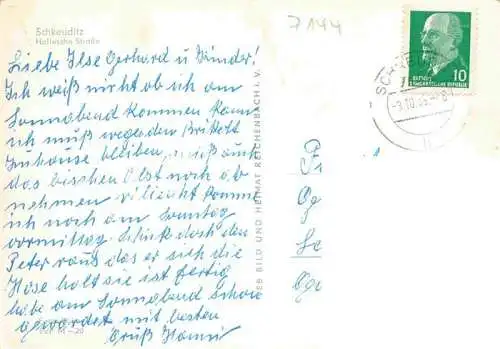 7144
Schkeuditz
Hallesche Straße
Liebe Ilse Gerhard u Kinder!
Ich weiß nicht ob ich am
Sonnabend kommen kann
ich muß wegen den Brikett
zuhause bleiben, muß auch
das bischen Obst noch ab
nehmen vileicht komme
ich noch am Sonntag
vormittag. Schick doch den
Peter raus das er sich die
Hose holt sie ist fertig
habe am Sonnabend schon
gewartet mit besten
Gruß Hanni
VEB BILD UND HEIMAT REICHENBACH I. V.
10
DEUTSCHE
DEMOKRATISCHE REPUBLIK